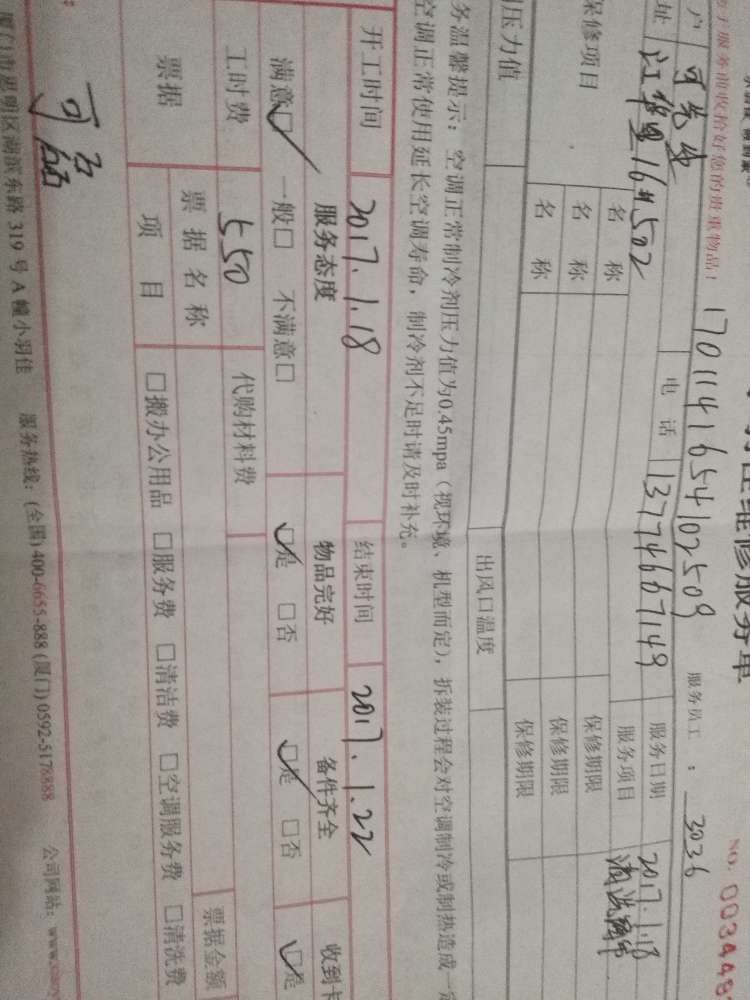 维修服务单
NO. 003448
服务前收拾好您的贵重物品！
1701141654102509
服务员工：3036
户 可先生 电话 13774667149 服务日期 2017.1.18
址 江华里16#502 服务项目 清洗
保修项目 名称 保修期限
名称 保修期限
名称 保修期限
压力值 出风口温度
务温馨提示：空调正常制冷剂压力值为0.45mpa（视环境、机型而定），拆装过程会对空调制冷或制热造成一定
空调正常使用延长空调寿命，制冷剂不足时请及时补充。
开工时间 2017.1.18 结束时间 2017.1.22
服务态度 物品完好 备件齐全 收到卡
满意☑ 一般□ 不满意□ ☑是 □否 ☑是 □否 ☑是
工时费 550 代购材料费
票据 票据名称 票据金额
项目 □搬办公用品 □服务费 □清洁费 □空调服务费 □清洗费
可磊
厦门市思明区湖滨东路319号A幢小羽佳 服务热线：(全国)400-6655-888 (厦门) 0592-5178888 公司网站：www.xiaoy